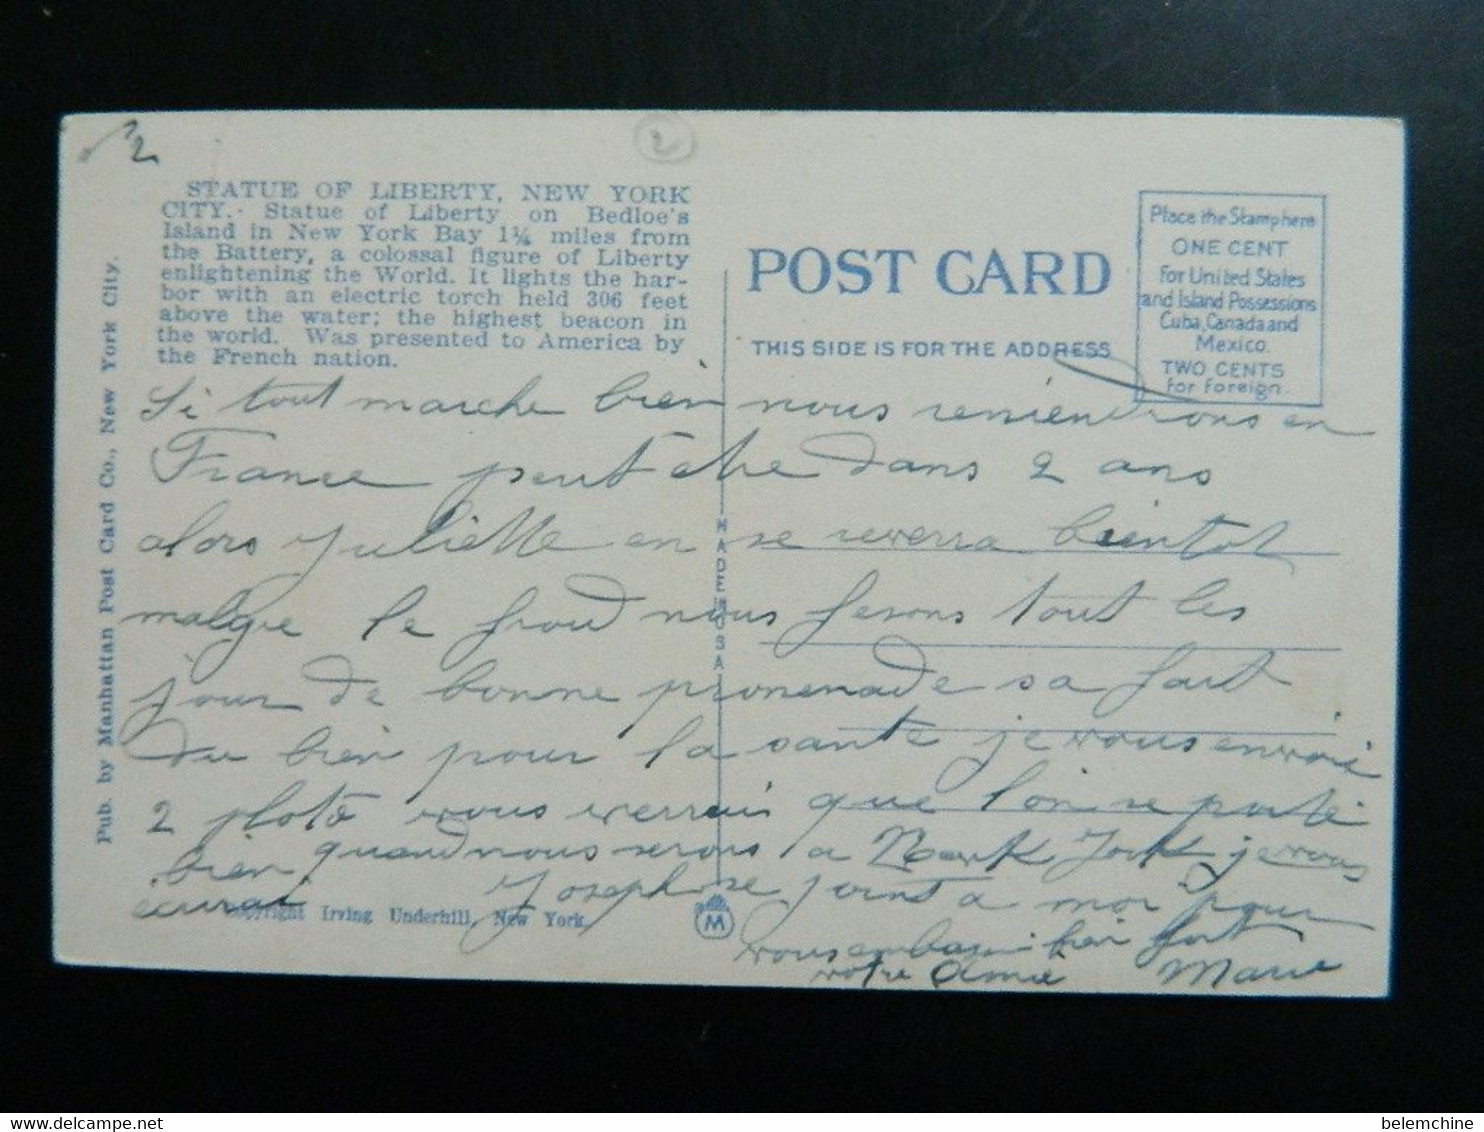 n° 2
2
STATUE OF LIBERTY, NEW YORK
CITY.- Statue of Liberty on Bedloe's
Island in New York Bay 1¾ miles from
the Battery, a colossal figure of Liberty
enlightening the World. It lights the har-
bor with an electric torch held 306 feet
above the water; the highest beacon in
the world. Was presented to America by
the French nation.
Pub. by Manhattan Post Card Co., New York City.
POST CARD
THIS SIDE IS FOR THE ADDRESS
Place the Stamp here
ONE CENT
For United States
and Island Possessions
Cuba, Canada and
Mexico.
TWO CENTS
for foreign.
MADE IN USA
Si tout marche bien nous reviendrons en
France peut etre dans 2 ans
alors Juliette on se reverra bientot
malgre le froid nous fesons tout les
jour de bonne promenade sa fait
du bien pour la sante je vous envoie
2 photo vous verrai que l'on se porte
bien quand nous serons a New York je vous
ecrirai Josephine joint a moi pour
vous embrasser bien fort
votre Amie Marie
Copyright Irving Underhill, New York.
M
belemchine